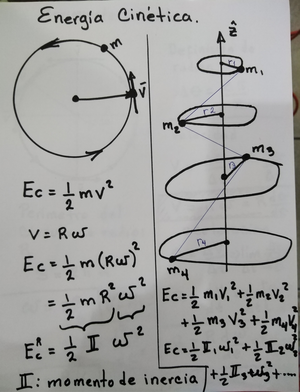 Energía Cinética.
m
V⃗
Ec = 1/2 mv²
V = Rω
Ec = 1/2 m(Rω)²
= 1/2 m R² ω²
E_c^R = 1/2 II ω²
II: momento de inercia
ẑ
r1
m1
r2
m2
m3
r3
r4
m4
Ec = 1/2 m1V1² + 1/2 m2V2²
+ 1/2 m3V3² + 1/2 m4V4²
Ec = 1/2 II1ω1² + 1/2 II2ω2²
+ 1/2 II3ω3² + ....